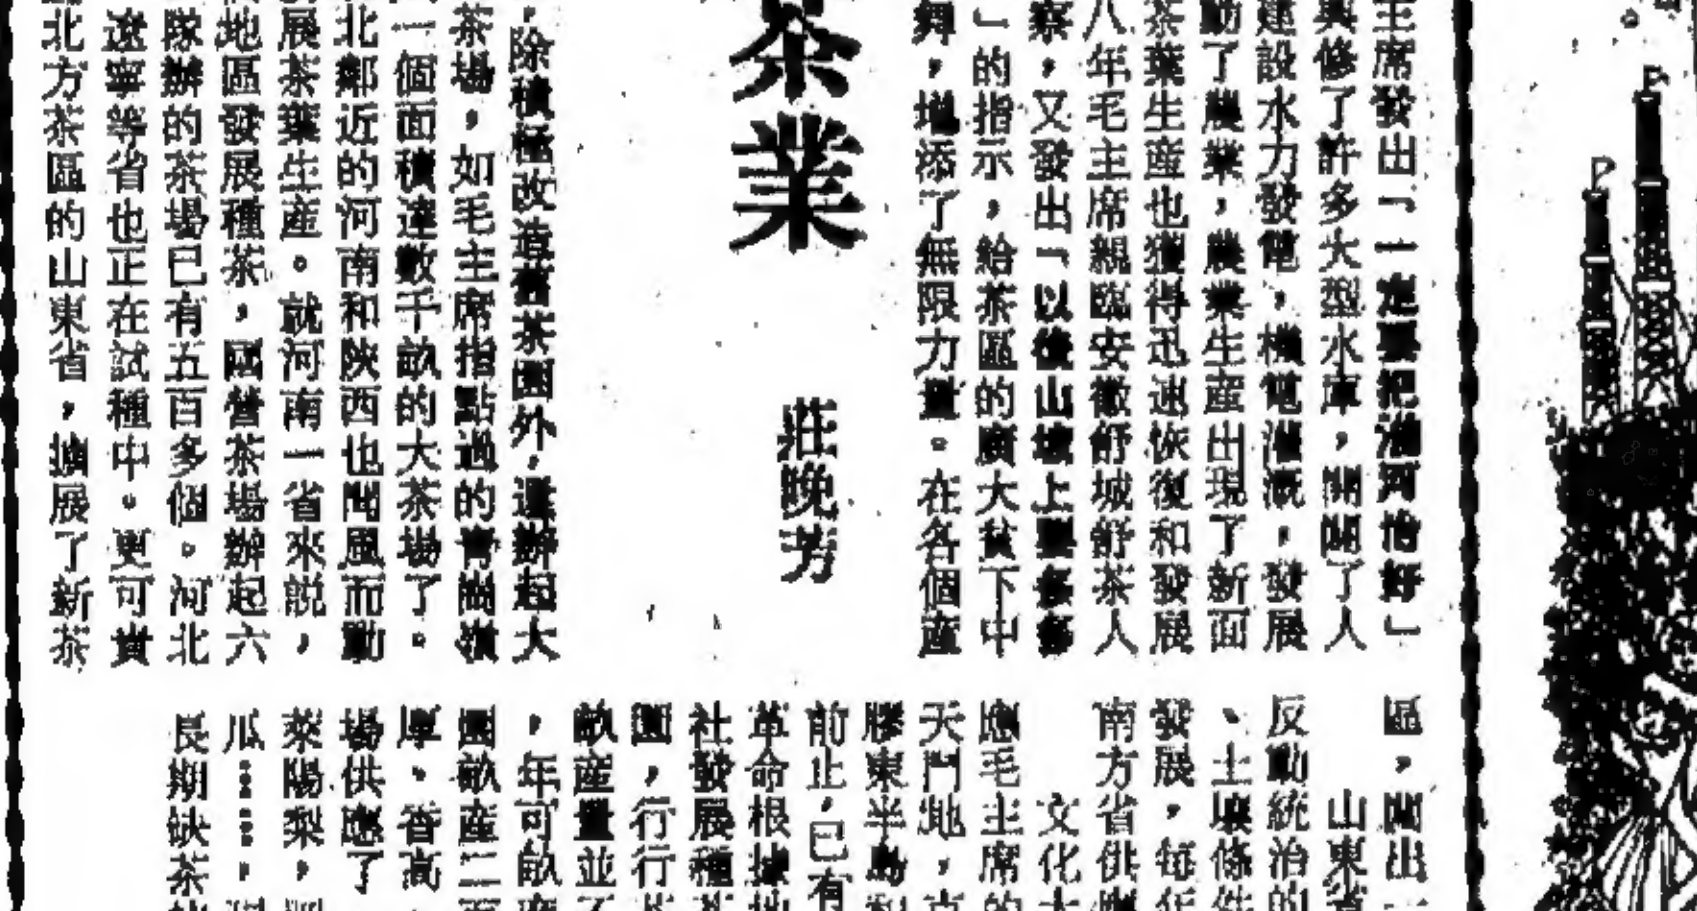 主席發出「一定要把淮河治好」
興修了許多大型水庫，開闢了人
建設水力發電，機電灌溉，發展
動了農業，農業生産出現了新面
茶葉生産也獲得迅速恢復和發展
八年毛主席親臨安徽舒城舒茶人
察，又發出「以後山坡上要多多
」的指示，給茶區的廣大貧下中
舞，增添了無限力量。在各個産
茶業
莊晚芳
，除積極改造舊茶園外，還辦起大
茶場，如毛主席指點過的青崗嶺
一個面積達數千畝的大茶場了。
北鄰近的河南和陝西也聞風而動
展茶葉生産。就河南一省來説，
地區發展種茶，國營茶場辦起六
隊辦的茶場已有五百多個。河北
遼寧等省也正在試種中。更可貴
北方茶區的山東省，擴展了新茶
區，開出一
山東省
反動統治的
、土壤條件
發展，每年
南方省供應
文化大
應毛主席的
天門地，克
膠東半島和
前止，已有
革命根據地
社發展種茶
園，行行茶
畝産量並不
，年可畝産
園畝産二百
厚、香高、
場供應了
萊陽梨，
瓜……，
長期缺茶